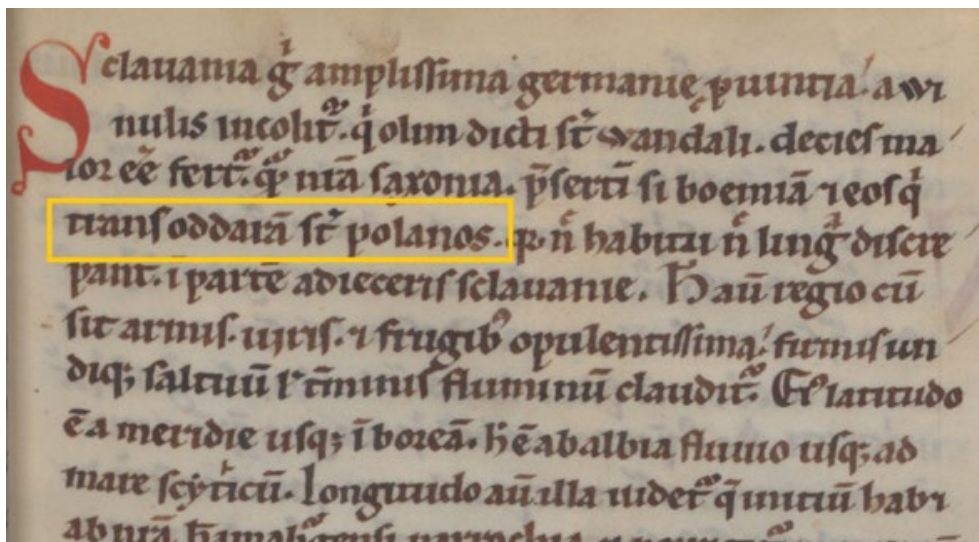 Sclauania g̊ amplissima germanię ꝓuintia. a wi
nulis incolit᷑. q̊ olim dicti st̄ wandali. decies ma
ior eē fert᷑. qᷓ nr̄a saxonia. p̄serti si boemiā ⁊ eos q̊
trans oddarā st̄ polanos. q̄ n̄ habitu n̄ lingᷓ discre
pant. ī partē adieceris sclauanie. H̄ aū regio cū
sit armis. uiris. ⁊ frugibꝰ opulentissima. firmis un
diqꝫ saltuū ł t̄minis fluminū claudit᷑. Eiꝰ latitudo
ē a meridie usqꝫ ī boreā. h̄ ē ab albia fluuio usqꝫ ad
mare scẏticū. Longitudo aū illa uidet᷑ q̄ initiū habꝫ
ab nr̄a